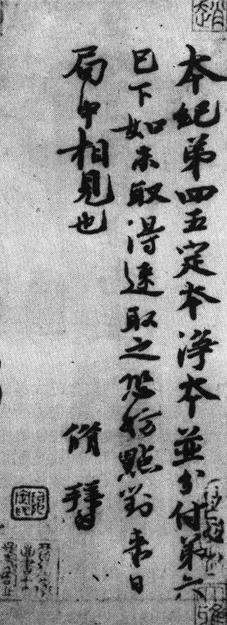 本紀第四五定本淨本並分付第六
已下如未取得速取之恐妨點對来日
局中相見也
脩 拜白